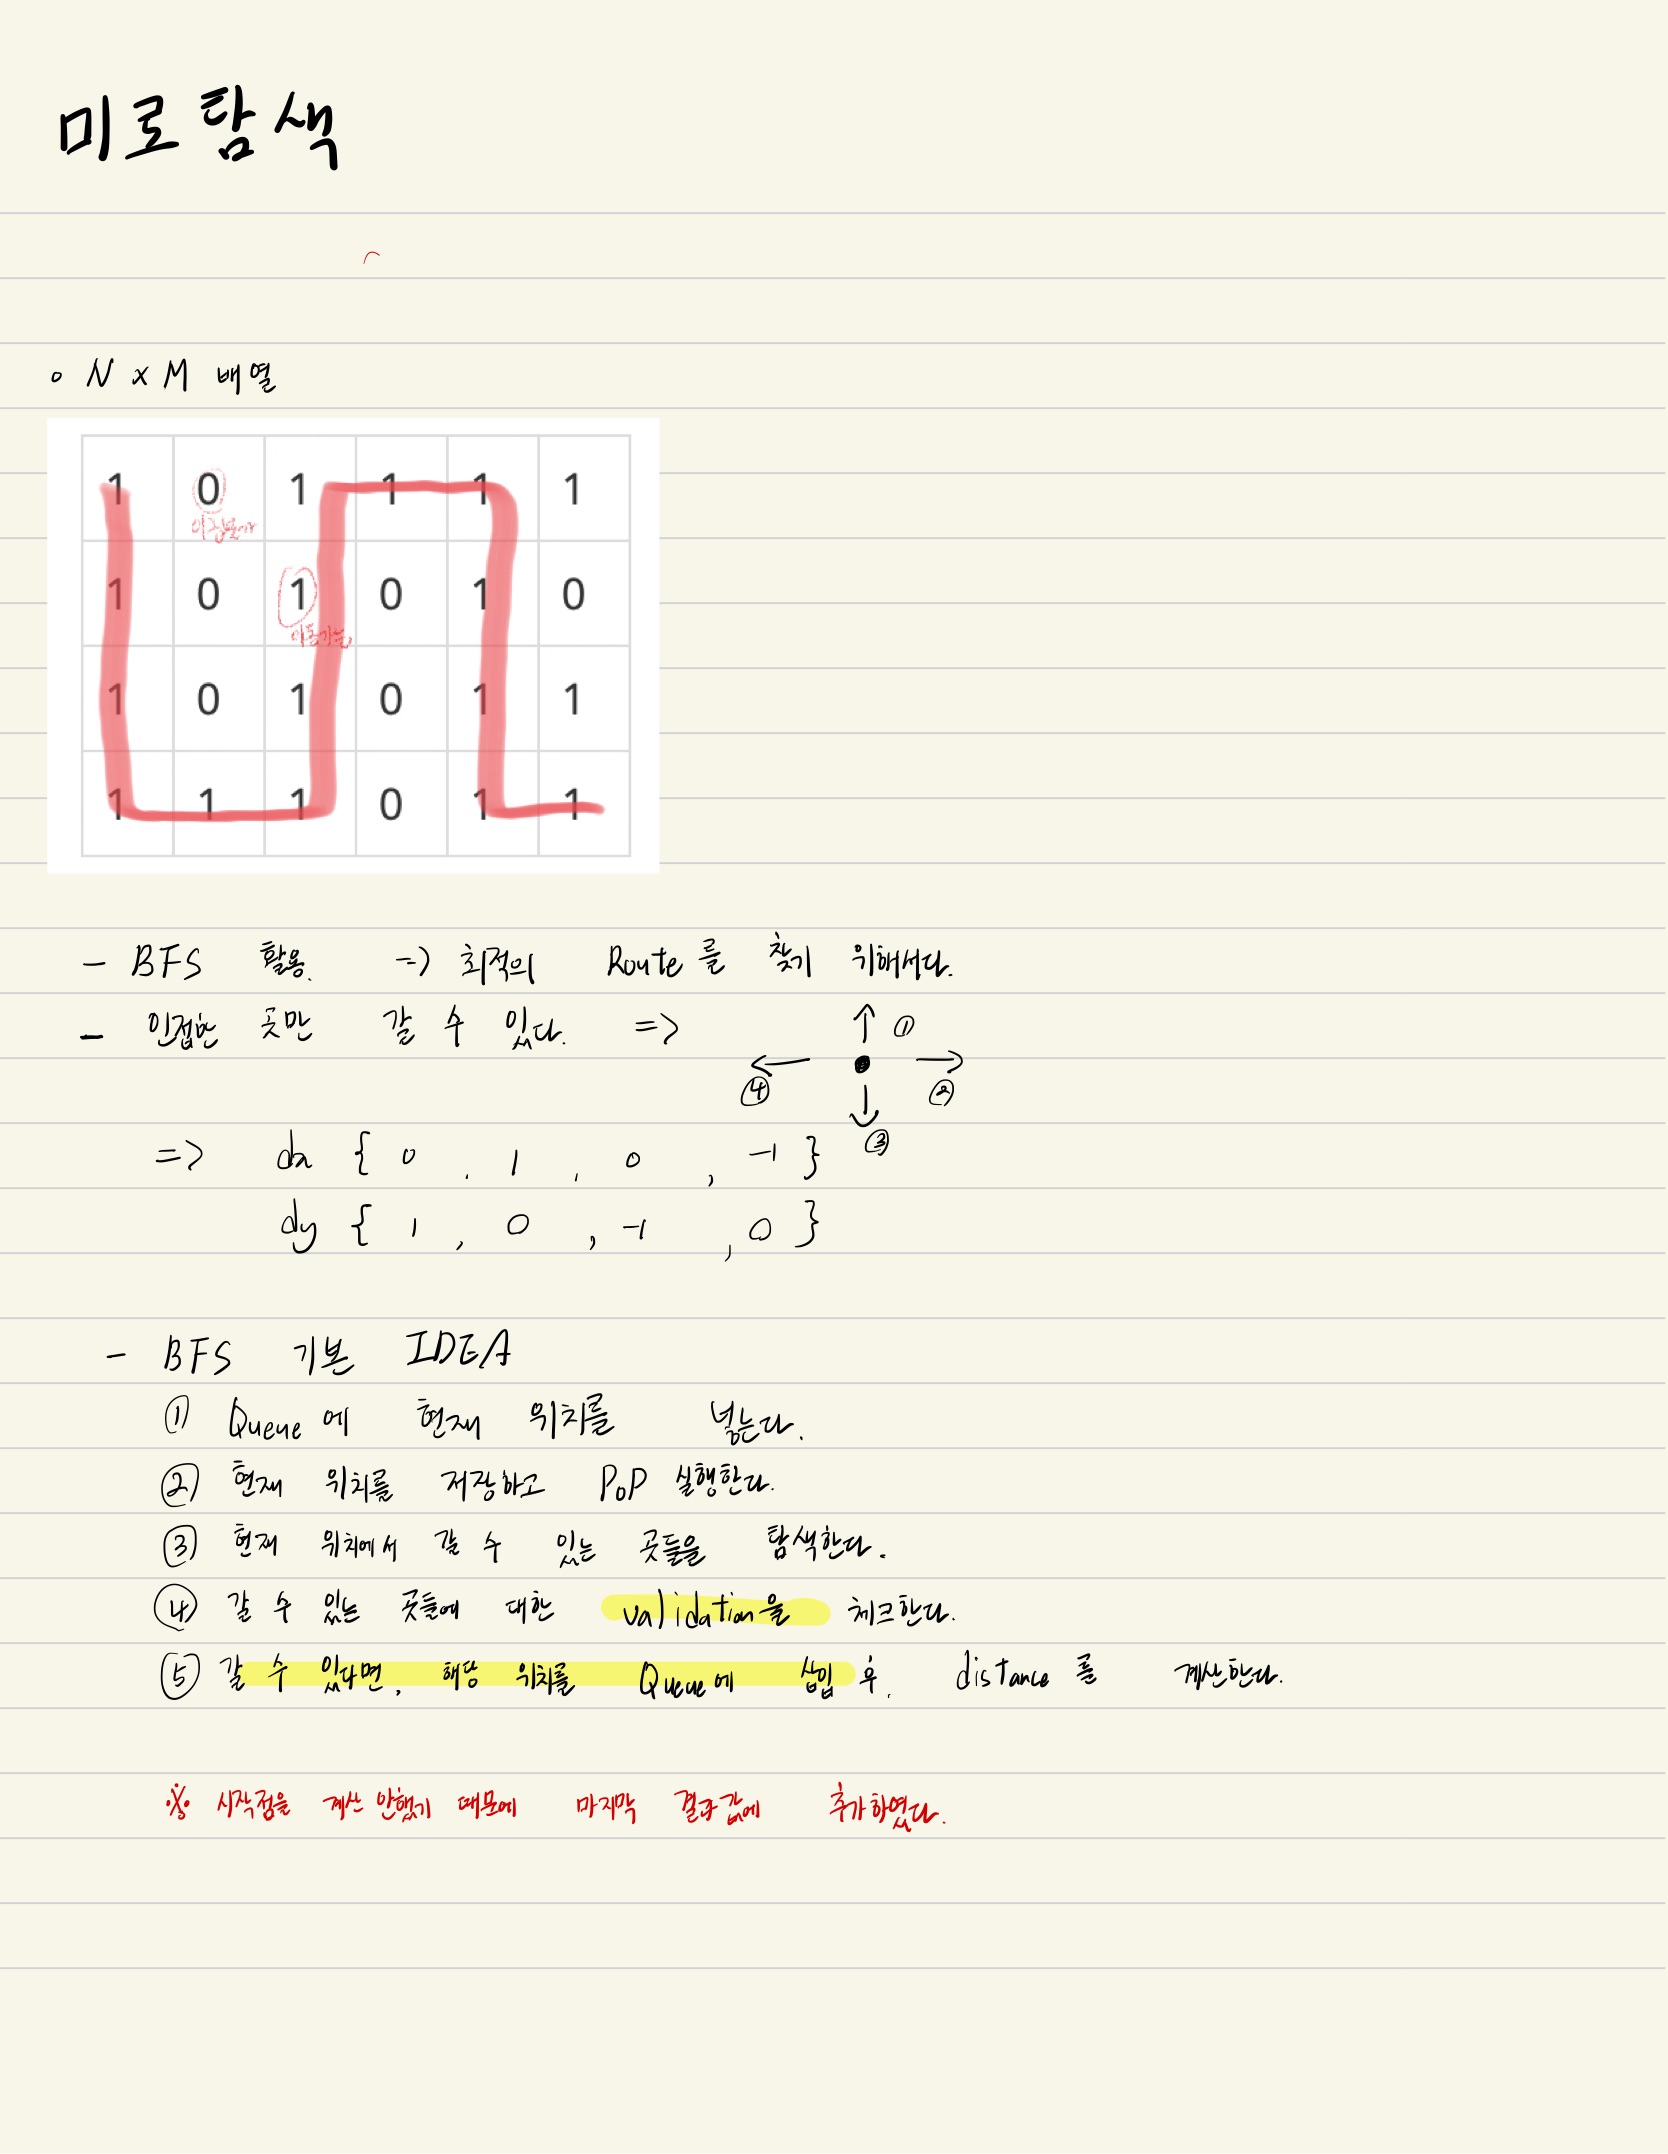 미로탐색
o N x M 배열
1 0 1 1 1 1
이동불가
1 0 1 0 1 0
이동가능
1 0 1 0 1 1
1 1 1 0 1 1
- BFS 활용. => 최적의 Route를 찾기 위해서다.
- 인접한 곳만 갈 수 있다. => ↑ ①
← • →
④ ②
↓
=> dx { 0 , 1 , 0 , -1 } ③
dy { 1 , 0 , -1 , 0 }
- BFS 기본 IDEA
① Queue에 현재 위치를 넣는다.
② 현재 위치를 저장하고 PoP 실행한다.
③ 현재 위치에서 갈 수 있는 곳들을 탐색한다.
④ 갈 수 있는 곳들에 대한 validation을 체크한다.
⑤ 갈 수 있다면, 해당 위치를 Queue에 삽입 후. distance를 계산한다.
※ 시작점을 계산 안했기 때문에 마지막 결과값에 추가하였다.